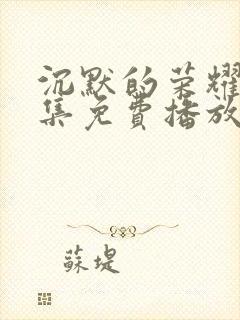 沉默的荣耀
集免費播放
蘇堤